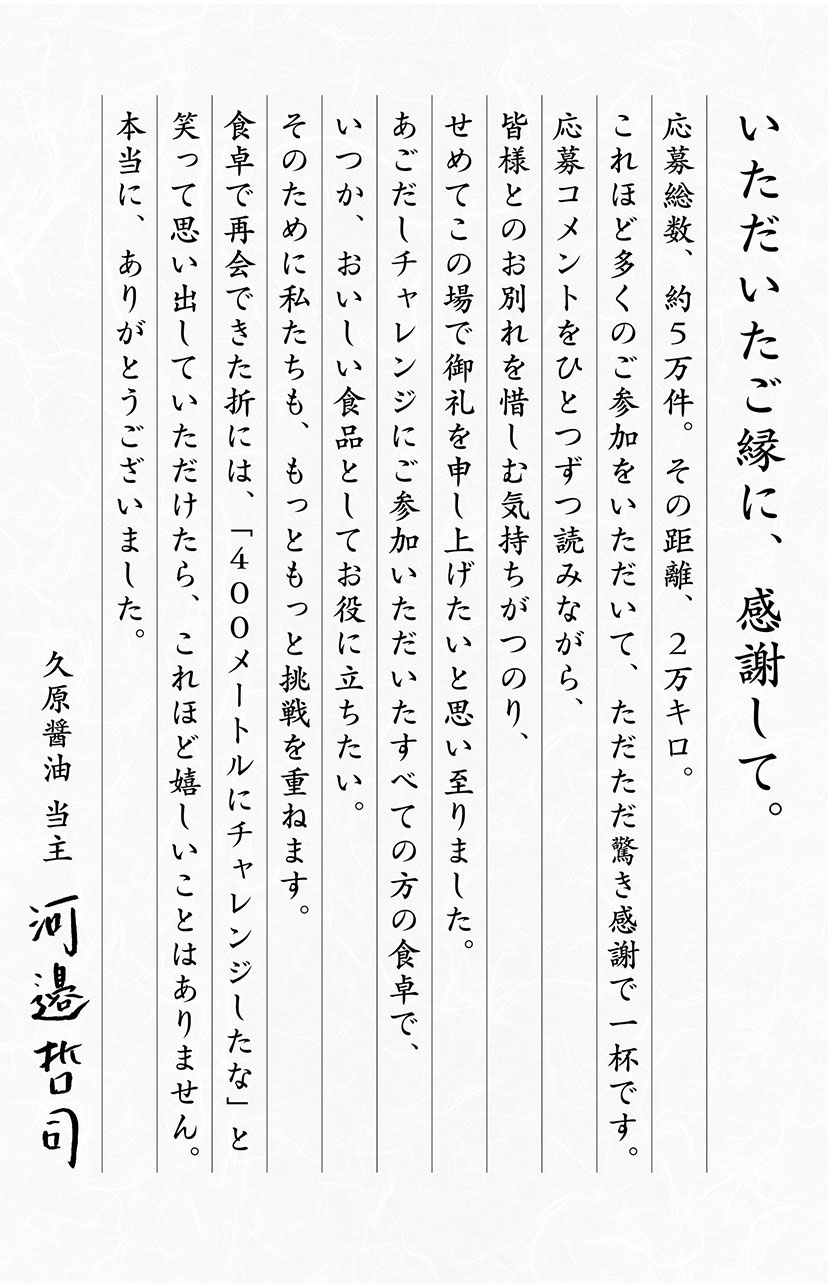 いただいたご縁に、感謝して。
応募総数、約５万件。その距離、２万キロ。
これほど多くのご参加をいただいて、ただただ驚き感謝で一杯です。
応募コメントをひとつずつ読みながら、
皆様とのお別れを惜しむ気持ちがつのり、
せめてこの場で御礼を申し上げたいと思い至りました。
あごだしチャレンジにご参加いただいたすべての方の食卓で、
いつか、おいしい食品としてお役に立ちたい。
そのために私たちも、もっともっと挑戦を重ねます。
食卓で再会できた折には、「４００メートルにチャレンジしたな」と
笑って思い出していただけたら、これほど嬉しいことはありません。
本当に、ありがとうございました。
久原醤油 当主 河邉哲司